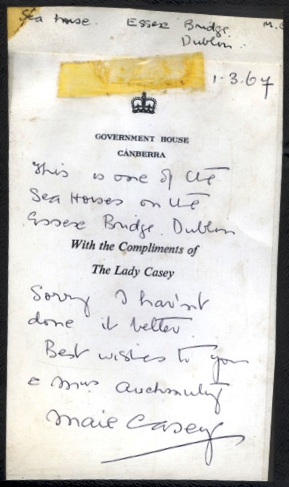 Sea horse. Essex Bridge. M.C
Dublin.
1.3.67
GOVERNMENT HOUSE
CANBERRA
This is one of the
Sea Horses on the
Essex Bridge. Dublin
With the Compliments of
The Lady Casey
Sorry I hav'nt
done it better
Best wishes to you
& Mrs Auchmuty
Maie Casey